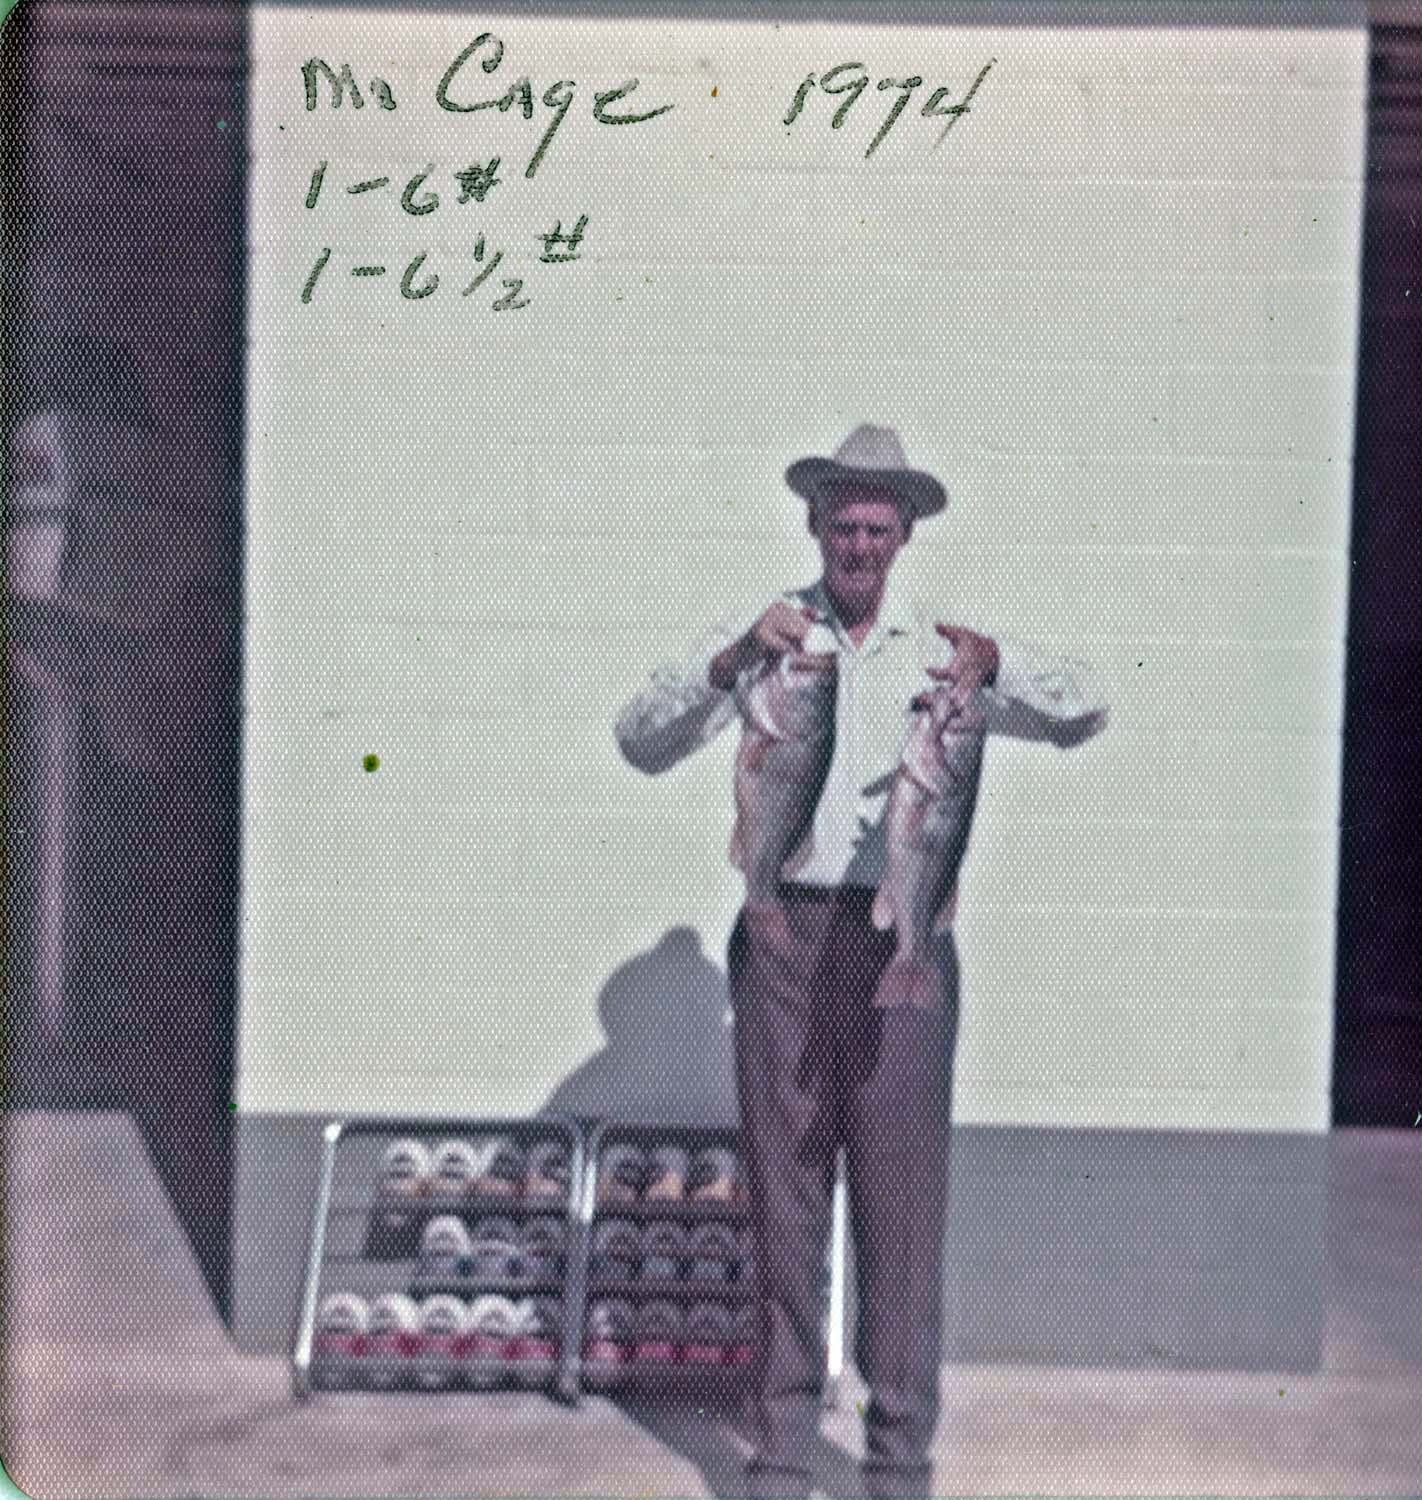 Mr Cage 1974
1-6#
1-6 1/2#